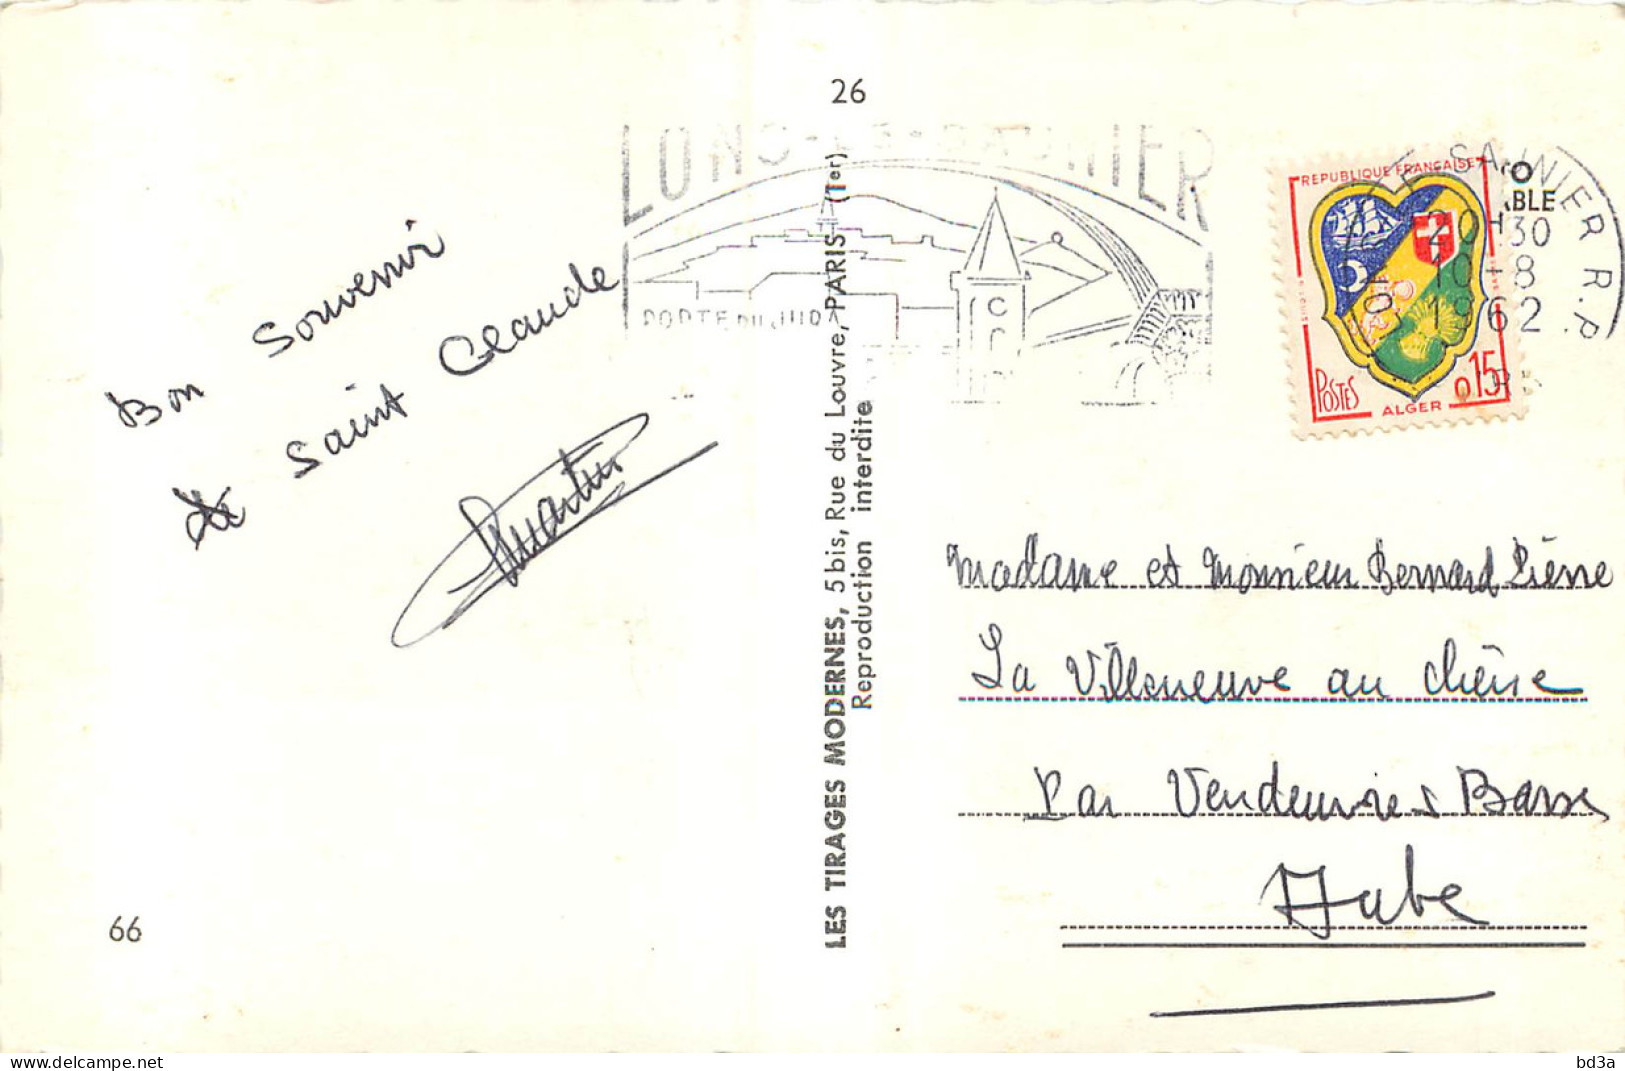 26
LONS-LE-SAUNIER
PORTE DU JURA
REPUBLIQUE FRANÇAISE
POSTES
ALGER
0,15
SAUNIER R.P.
20H30
10-8
1962
ABLE
Bon Souvenir
de Saint Claude
Martin
LES TIRAGES MODERNES, 5 bis, Rue du Louvre, PARIS (1er)
Reproduction interdite
Madame et Monsieur Bernard Pierre
La Villeneuve au chêne
Par Vendeuvres Barse
Aube
66
bd3a